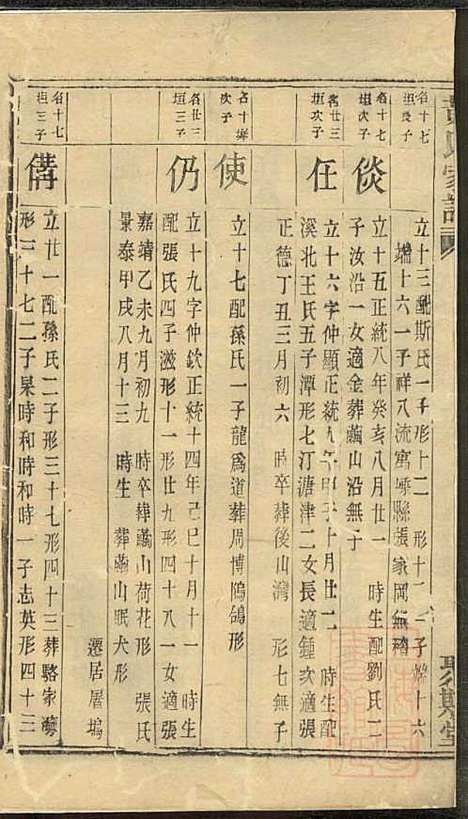 名十七
垣長子
立十三配斯氏一子形十二
形十二
子
十六
端十六一子祥八流寓嵊縣張家岡無稽
名十七
垣次子
倓
立十五正統八年癸亥八月廿一 時生配劉氏二
子汝沿一女適金葬繭山沿無子
名廿三
垣次子
任
立十六字仲顯正統九年甲子十月廿二 時生配
溪北王氏五子潭形七汀溏津二女長適鍾次適張
正德丁丑三月初六 時卒葬後山灣 形七無子
次子
使
立十七配孫氏一子龍爲道葬周博鴿形
名廿三
垣三子
仍
立十九字仲欽正統十四年己巳十月十一 時生
配張氏四子滋形十一形廿九形四十八一女適張
嘉靖乙未九月初九 時卒葬繭山荷花形 張氏
景泰甲戌八月十三 時生 葬繭山眠犬形
遷居屠塢
名十七
垣三子
備
立廿一配孫氏二子形三十七形四十三葬駱家
形三十七二子杲時和時和時一子志英形四十三
氏家譜
聚斯堂